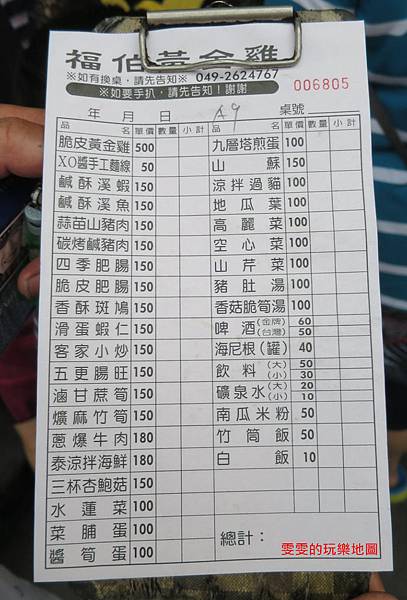 福伯黃金雞
※如有換桌，請先告知※ 049-2624767
※如要手扒，請先告知！謝謝
006805
年 月 日 A9 桌號
品名 單價 數量 小計 品名 單價 數量 小計
脆皮黃金雞 500 九層塔煎蛋 100
XO醬手工麵線 50 山蘇 150
鹹酥溪蝦 150 涼拌過貓 100
鹹酥溪魚 150 地瓜葉 100
蒜苗山豬肉 150 高麗菜 100
碳烤鹹豬肉 150 空心菜 100
四季肥腸 150 山芹菜 100
脆皮肥腸 150 豬肚湯 100
香酥斑鳩 150 香菇脆筍湯 100
滑蛋蝦仁 150 啤酒(金牌) 60 (台灣) 50
客家小炒 150 海尼根(罐) 40
五更腸旺 150 飲料(大) 50 (小) 30
滷甘蔗筍 150 礦泉水(大) 20 (小) 10
爌麻竹筍 150 南瓜米粉 50
蔥爆牛肉 180 竹筒飯 50
泰涼拌海鮮 180 白飯 10
三杯杏鮑菇 150
水蓮菜 100
菜脯蛋 100 總計：
醬筍蛋 100
雯雯的玩樂地圖